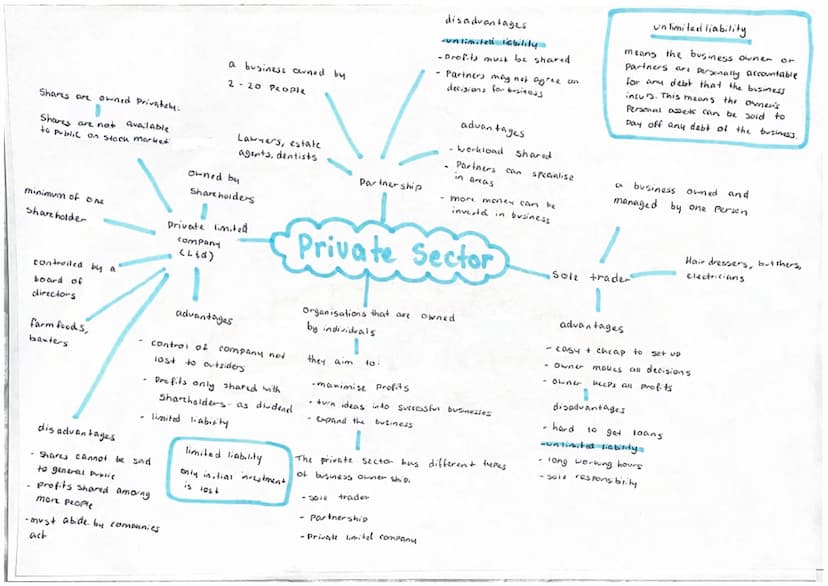 disadvantages
- unlimited liability
- Profits must be shared
- Partners may not agree on
decisions for business
unlimited liability
means the business owner or
partners are personally accountable
for any debt that the business
incurs. This means the owner's
Personal assets can be sold to
pay off any debt of the business.
a business owned by
2 - 20 people
Lawyers, estate
agents, dentists
Partnership
advantages
- workload shared
- Partners can specialise
in areas
- more money can be
invested in business
Shares are owned privately.
Shares are not available
to public on stock market
owned by
Shareholders
minimum of one
Shareholder
Private limited
company
(Ltd)
controlled by a
board of
directors
farmfoods,
baxters
advantages
- control of company not
lost to outsiders
- Profits only shared with
Shareholders - as dividend
- limited liability
disadvantages
- shares cannot be sold
to general public
- profits shared among
more people
- must abide by companies
act
limited liability
only initial investment
is lost
Private Sector
Organisations that are owned
by individuals
they aim to:
- maximise profits
- turn ideas into successful businesses
- expand the business
The private sector has different types
of business ownership.
- sole trader
- partnership
- private limited company
a business owned and
managed by one person
Sole trader
Hairdressers, butchers,
electricians
advantages
- easy + cheap to set up
- owner makes all decisions
- owner keeps all profits
disadvantages
- hard to get loans
- unlimited liability
- long working hours
- sole responsibility